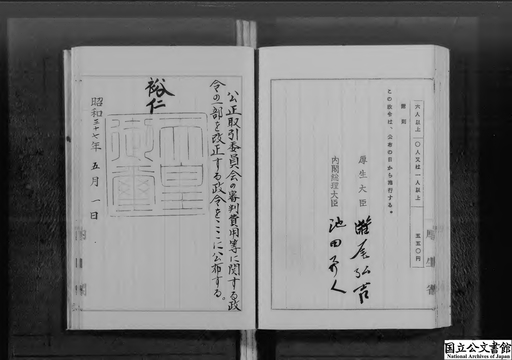 六人以上一〇人又は一人以上 五五〇円
附則
この政令は、公布の日から施行する。
厚生大臣 灘尾弘吉
内閣総理大臣 池田勇人
公正取引委員会の審判費用等に関する政
令の一部を改正する政令をここに公布する。
裕仁
天皇御璽
昭和三十七年五月一日
国立公文書館
National Archives of Japan